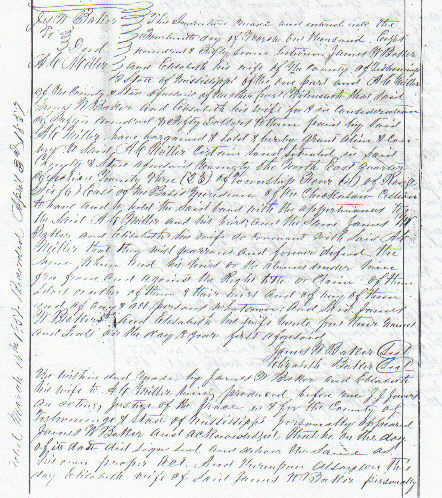 Jas W Baker
To } Deed
A C Miller
This Indenture made and entered into the
day of March One thousand Eight
hundred & fifty Seven between James W Baker
and Elizabeth his wife of the County of Tishomingo
& State of Mississippi of the one part and A C Miller
of the County & State aforesaid of the other part Witnesseth that said
James W Baker and Elizabeth his wife for & in Consideration
of hundred & fifty Dollars to them paid by said
A C Miller have bargained & sold & hereby grant Alien & Con
vey to said A C Miller Certain land situated in said
County & State aforesaid Known as the North East Quarter
of Section Twenty Three (23) of Township Four (4) of Range
Six (6) East of the Basis Meridian of the Chickasaw Cession
to have and to hold the said land with the appurtenances to
the said A C Miller and his heirs and the said James W
Baker and Elizabeth his wife do covenant with said A C
Miller that they will warrant and forever defend the
same
free from and against the Right title or Claim of them
and of any & all persons whatsoever And said James
W Baker and Elizabeth his wife
and Seals on the day & year first aforesaid
James W Baker (Seal)
Elizabeth Baker (Seal)
The within deed made by James W Baker and Elizabeth
his wife to A C Miller being produced before me J J Jones
an acting Justice of the Peace in & for the County of
Tishomingo & State of Mississippi personally appeared
James W Baker and acknowledged that he on the day
of its date did sign seal and deliver the same as
his own proper act, And thereupon also on this
day Elizabeth wife of said James W Baker personally
Filed March 1857 Recorded April 3rd 1857